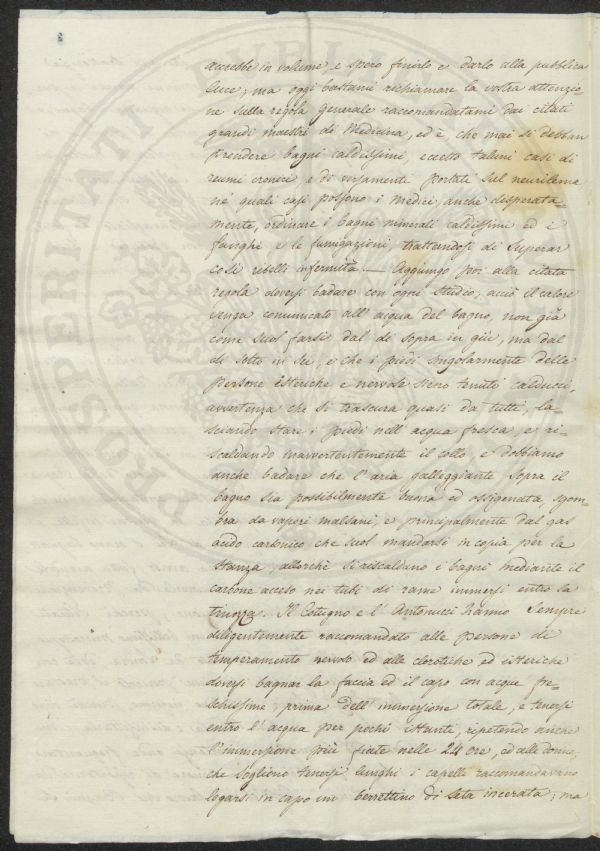 accebbe in volume, e spero finirlo e darlo alla pubblica
luce; ma oggi bastami richiamare la vostra attenzio-
ne sulla regola generale raccomandatami dai citati
grandi maestri di Medicina, ed è che mai si debban
prendere bagni caldissimi, eccetto taluni casi di
reumi cronici, e di versamenti portati sul neurilema
ne' quali casi possono i Medici, anche disperata-
mente, ordinare i bagni minerali caldissimi ed i
fanghi e le fumigazioni trattandosi di superar
così ribelli infermità. Aggiungo poi alla citata
regola doversi badare con ogni studio, acciò il calore
venga comunicato all'acqua del bagno, non già
come suol farsi dal di sopra in giù, ma dal
di sotto in su, e che i piedi singolarmente delle
persone isteriche e nervose sieno tenuti calducci,
avvertenza che si trascura quasi da tutti, la
sciando stare i piedi nell'acqua fresca, e ri-
scaldando inavvertentemente il collo, e dobbiamo
anche badare che l'aria galleggiante sopra il
bagno sia possibilmente buona ed ossigenata, sgom-
bra da vapori malsani, e principalmente dal gas
acido carbonico che suol mandarsi in copia per la
stanza, allorchè si riscaldino i bagni mediante il
carbone acceso nei tubi di rame immersi entro la
tinozza. Il Cotugno e l'Antonucci hanno sempre
diligentemente raccomandato alle persone di
temperamento nervoso ed alle clorotiche ed isteriche
doversi bagnar la faccia ed il capo con acque fre-
schissime prima dell'immersione totale, e tenersi
entro l'acqua per pochi istanti, ripetendo anche
l'immersione più fiate nelle 24 ore, ed alle donne,
che sogliono tenersi lunghi i capelli raccomandavano
legarsi in capo un berrettino di seta incerata; ma
PROSPERITATI PUBLIC